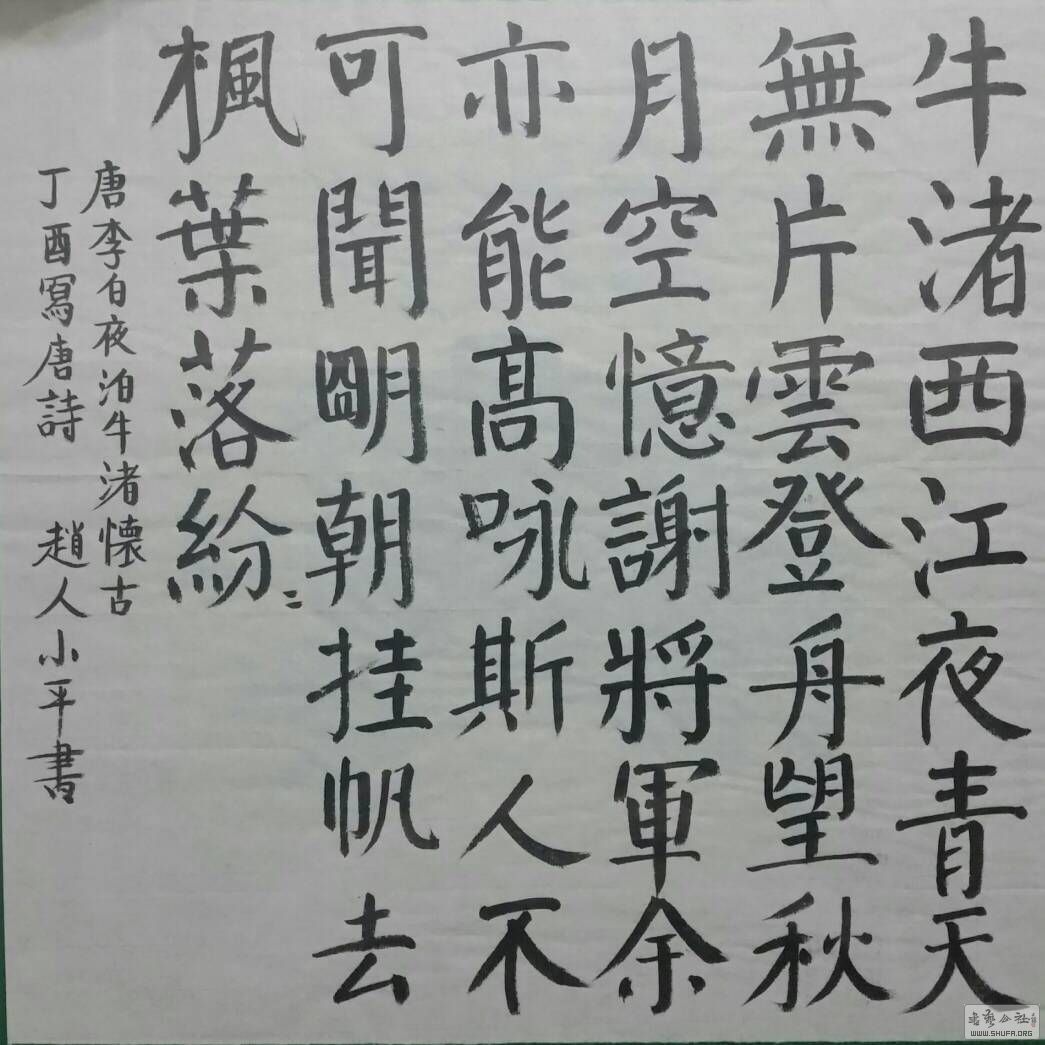 牛渚西江夜青天
無片雲登舟望秋
月空憶謝將軍余
亦能高咏斯人不
可聞明朝挂帆去
楓葉落紛〻
唐李白夜泊牛渚懷古
丁酉寫唐詩 趙人小平書
書藝公社
WWW.SHUFA.ORG